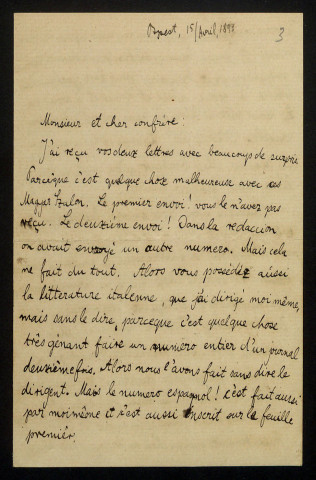 Bpest, 15/Avril, 1898
3
Monsieur et cher confrère:
J'ai reçu vos deux lettres avec beaucoup de surprise
Parceque c'est quelque chose malheureuse avec ses
Magyar Szalon. Le premier envoi! vous le n'avez pas
reçu. Le deuxième envoi! Dans la redaction
on avait envoyé un autre numero. Mais cela
ne fait du tout. Alors vous possédez aussi
la litterature italienne, que j'ai dirigé moi même,
mais sans le dire, parceque c'est quelque chose
très génant faire un numero entier d'un journal
deuxièmefois. Alors nous l'avons fait sans dire le
dirigent. Mais le numero espagnol! c'est fait aussi
par moi même et c'est aussi inscrit sur le feuille
premièr.